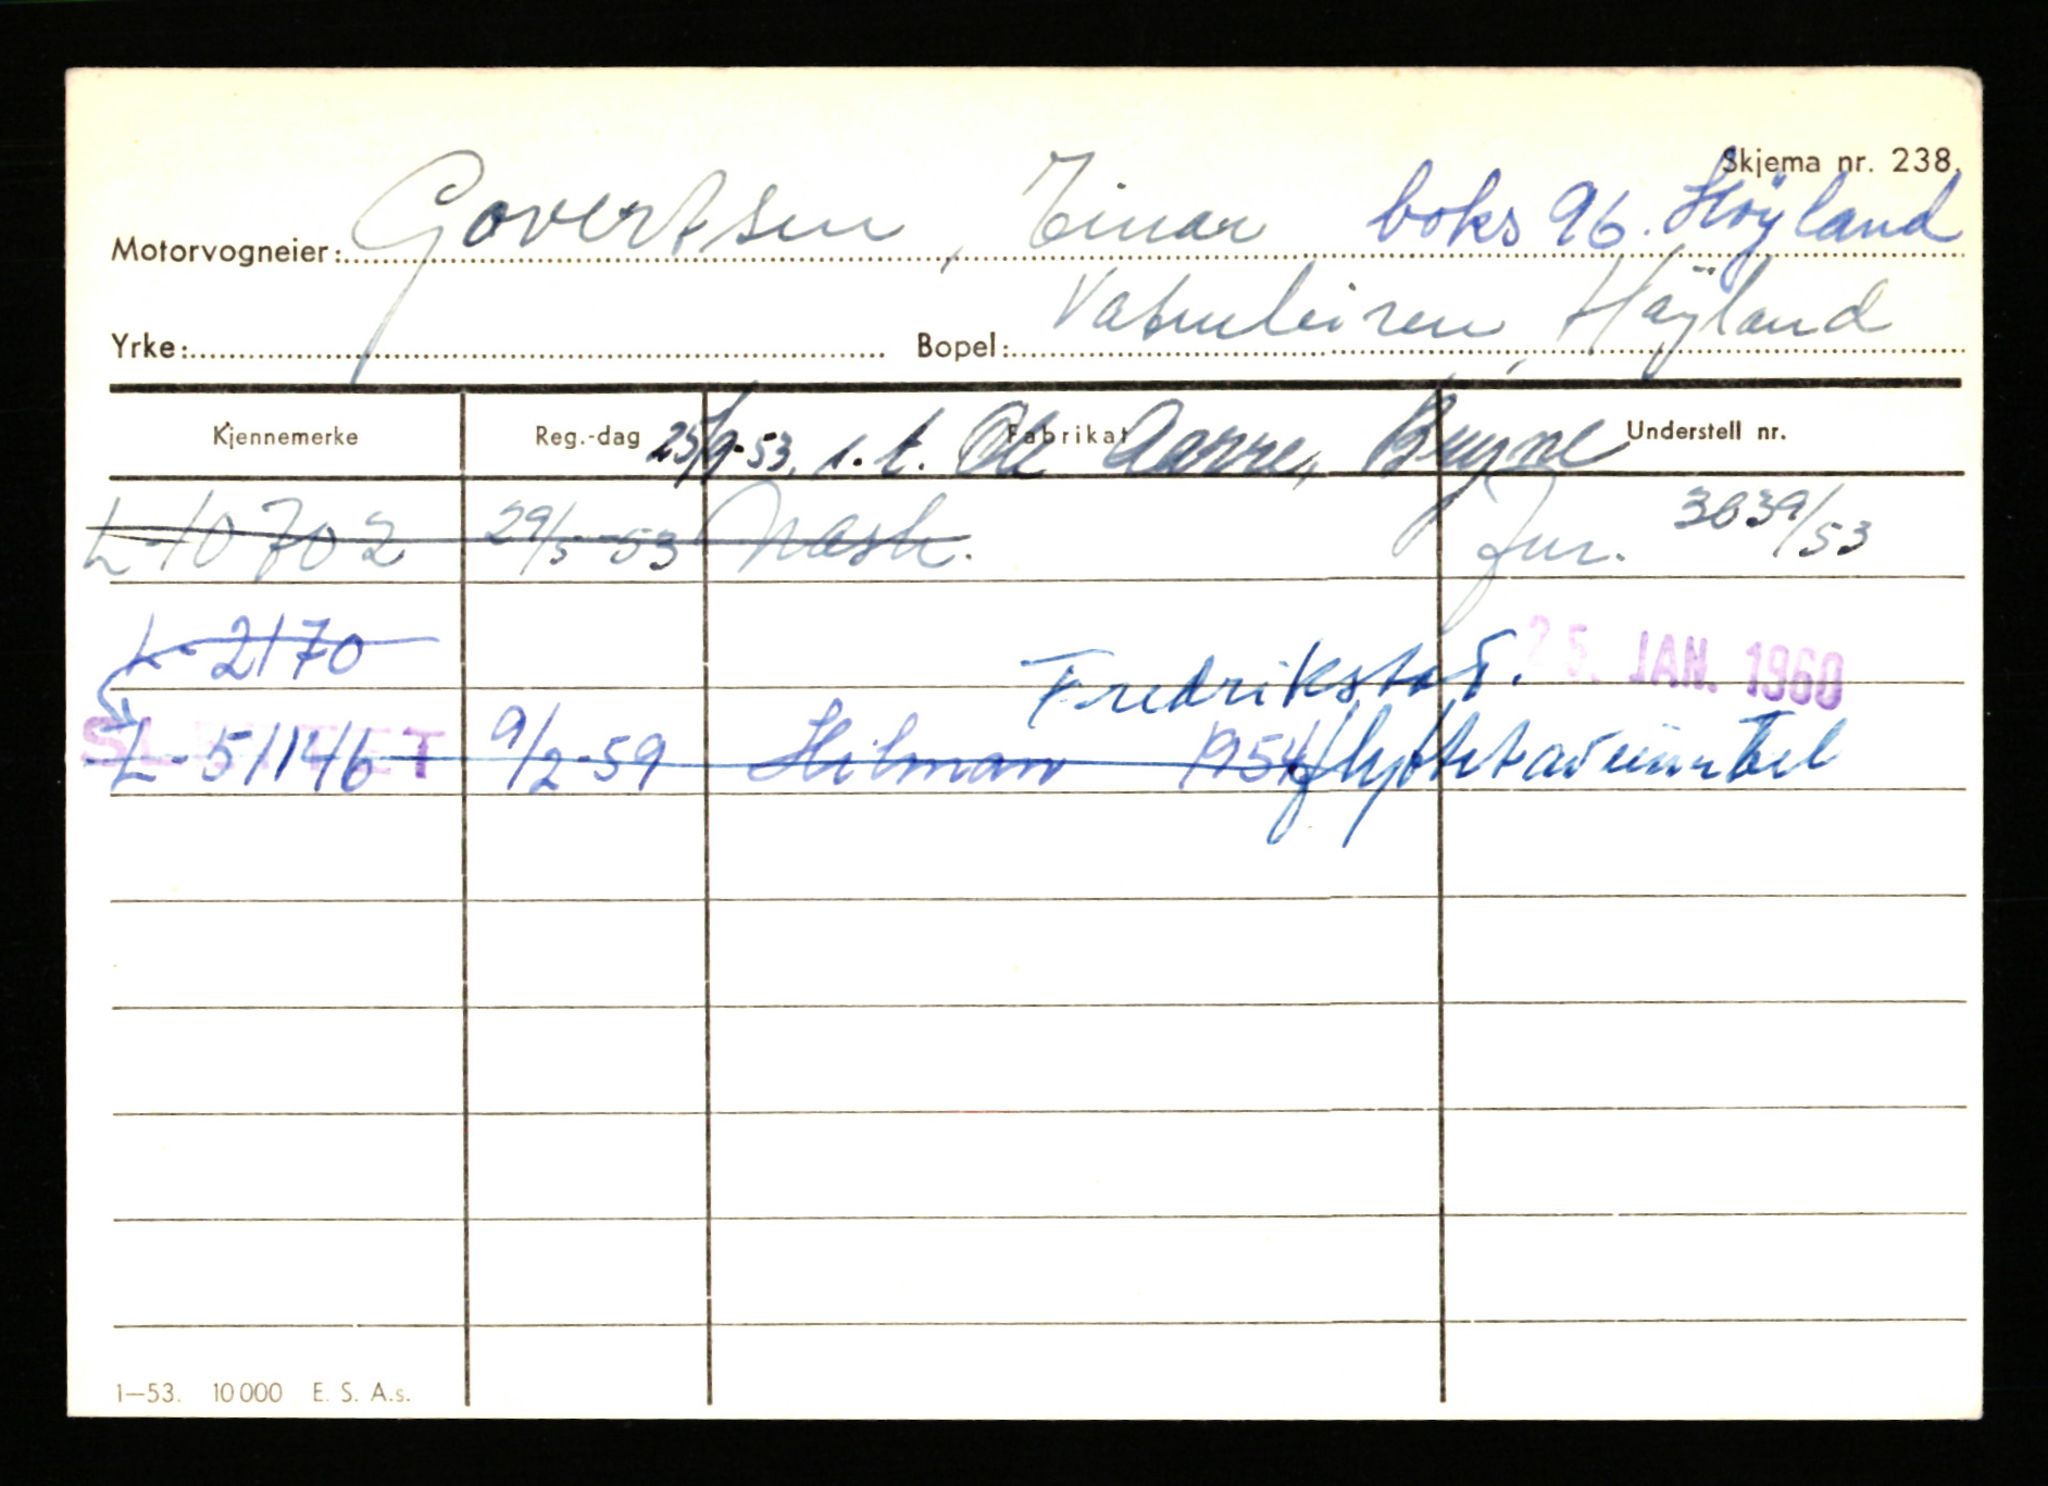 Skjema nr. 238.
Motorvogneier: Govertsen, Einar boks 96. Höyland
Yrke: Bopel: Vatneleiren, Höyland
Kjennemerke Reg.-dag Fabrikat Understell nr.
25/9-53. s. t. Ole Aarre, Bryne
L-10702 29/5-53 Nash. Jnr. 3639/53
L-2170 Fredrikstad. 25. JAN. 1960
SLETTET
L-51146 9/2-59 Hilman 1954 flyttet
1—53. 10 000 E. S. A.s.